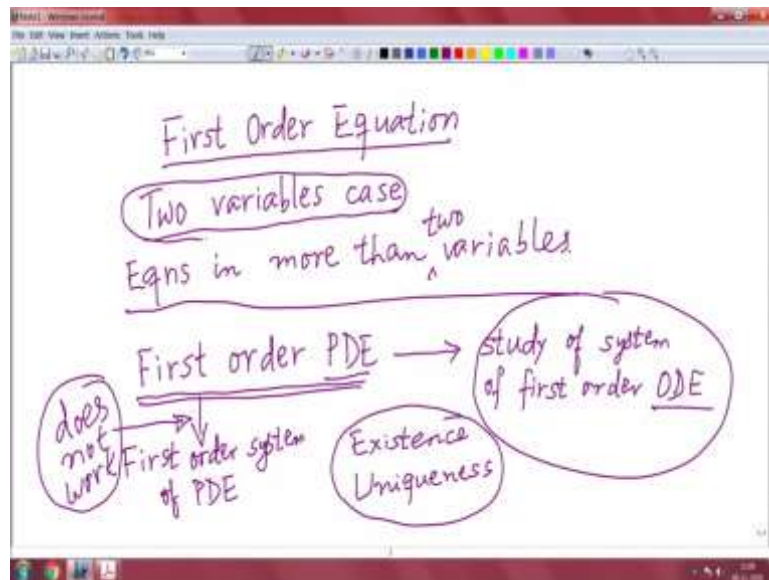 Note1 - Windows Journal
File Edit View Insert Actions Tools Help
First Order Equation
Two variables case
two
Eqns in more than ^ variables
First order PDE → study of system
of first order ODE
does
not
work
First order system
of PDE
Existence
Uniqueness